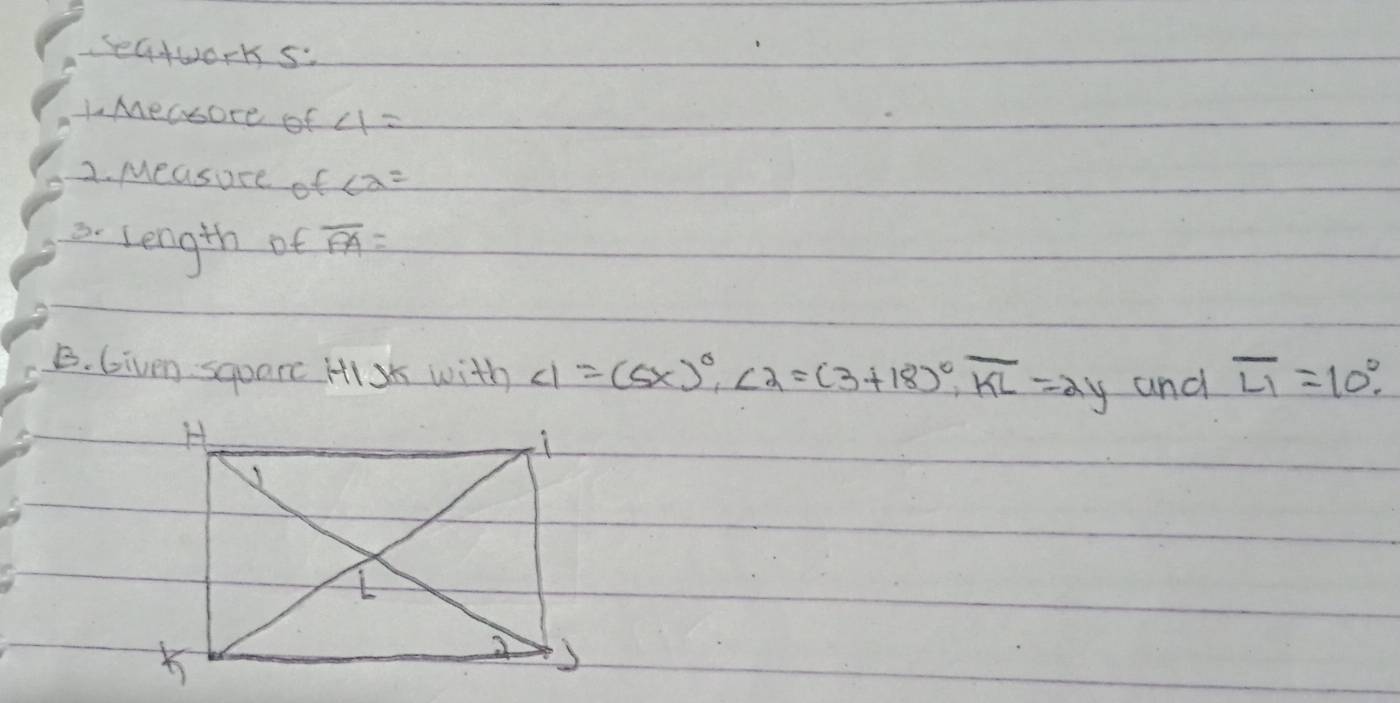 Seatwork 5:
1. Measure of <1 =
2. Measure of <2=
3. Length of =
B. Given square HIJK with <1 = (5x)°, <2 = (3+18)°, KL =2y and LI =10°.
H i
1
L
K 2 J